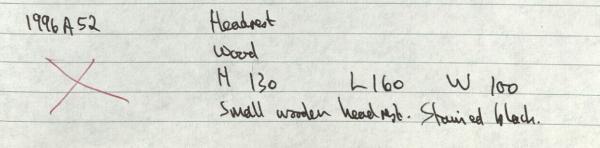 1996A52 Headrest
Wood
H 130 L 160 W 100
Small wooden headrest. Stained black.